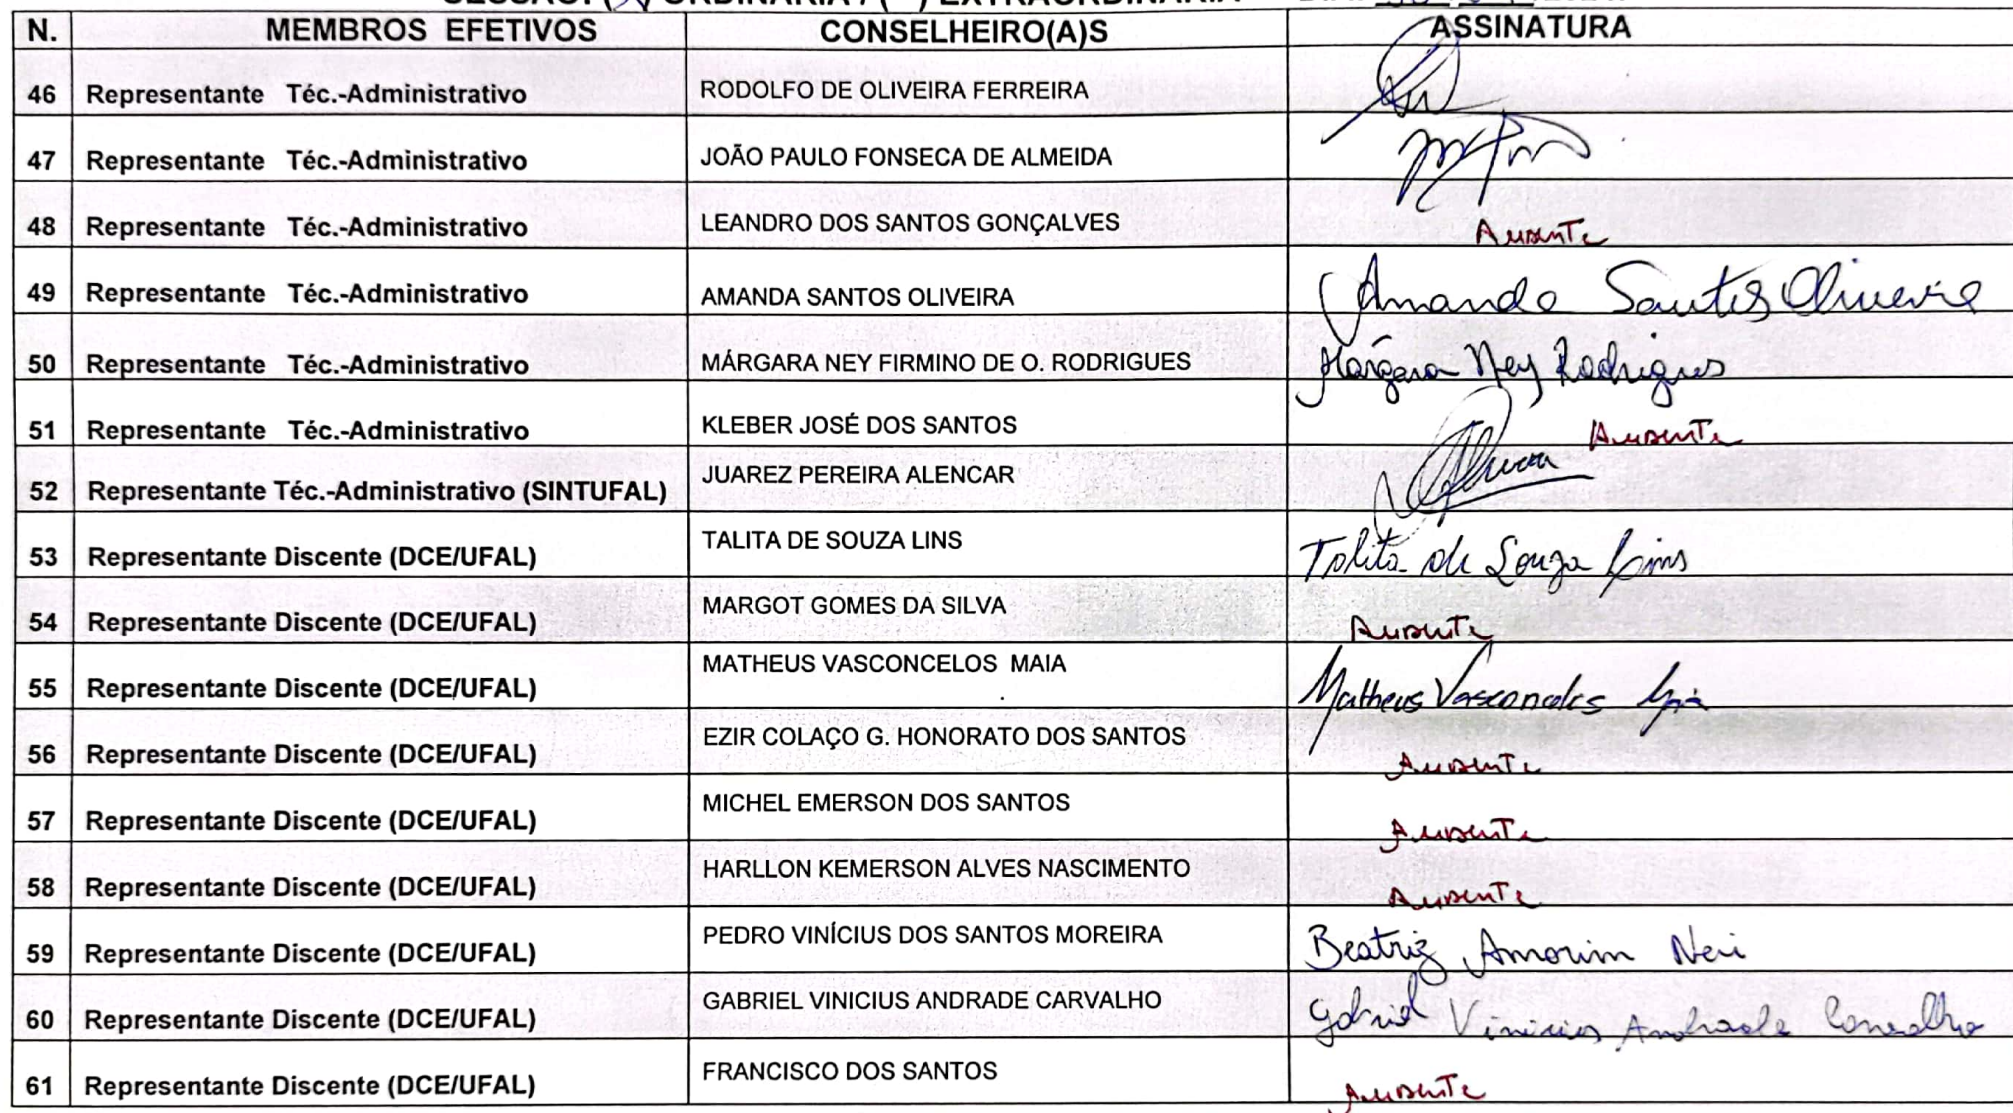 SESSÃO: (X) ORDINÁRIA / ( ) EXTRAORDINÁRIA
N. MEMBROS EFETIVOS CONSELHEIRO(A)S ASSINATURA
46 Representante Téc.-Administrativo RODOLFO DE OLIVEIRA FERREIRA
47 Representante Téc.-Administrativo JOÃO PAULO FONSECA DE ALMEIDA
48 Representante Téc.-Administrativo LEANDRO DOS SANTOS GONÇALVES Ausente
49 Representante Téc.-Administrativo AMANDA SANTOS OLIVEIRA Amanda Santos Oliveira
50 Representante Téc.-Administrativo MÁRGARA NEY FIRMINO DE O. RODRIGUES Márgara Ney Rodrigues
51 Representante Téc.-Administrativo KLEBER JOSÉ DOS SANTOS Ausente
52 Representante Téc.-Administrativo (SINTUFAL) JUAREZ PEREIRA ALENCAR
53 Representante Discente (DCE/UFAL) TALITA DE SOUZA LINS Talita de Souza Lins
54 Representante Discente (DCE/UFAL) MARGOT GOMES DA SILVA Ausente
55 Representante Discente (DCE/UFAL) MATHEUS VASCONCELOS MAIA Matheus Vasconcelos
56 Representante Discente (DCE/UFAL) EZIR COLAÇO G. HONORATO DOS SANTOS Ausente
57 Representante Discente (DCE/UFAL) MICHEL EMERSON DOS SANTOS Ausente
58 Representante Discente (DCE/UFAL) HARLLON KEMERSON ALVES NASCIMENTO Ausente
59 Representante Discente (DCE/UFAL) PEDRO VINÍCIUS DOS SANTOS MOREIRA Beatriz Amorim Neri
60 Representante Discente (DCE/UFAL) GABRIEL VINICIUS ANDRADE CARVALHO Gabriel Vinicius Andrade Carvalho
61 Representante Discente (DCE/UFAL) FRANCISCO DOS SANTOS Ausente